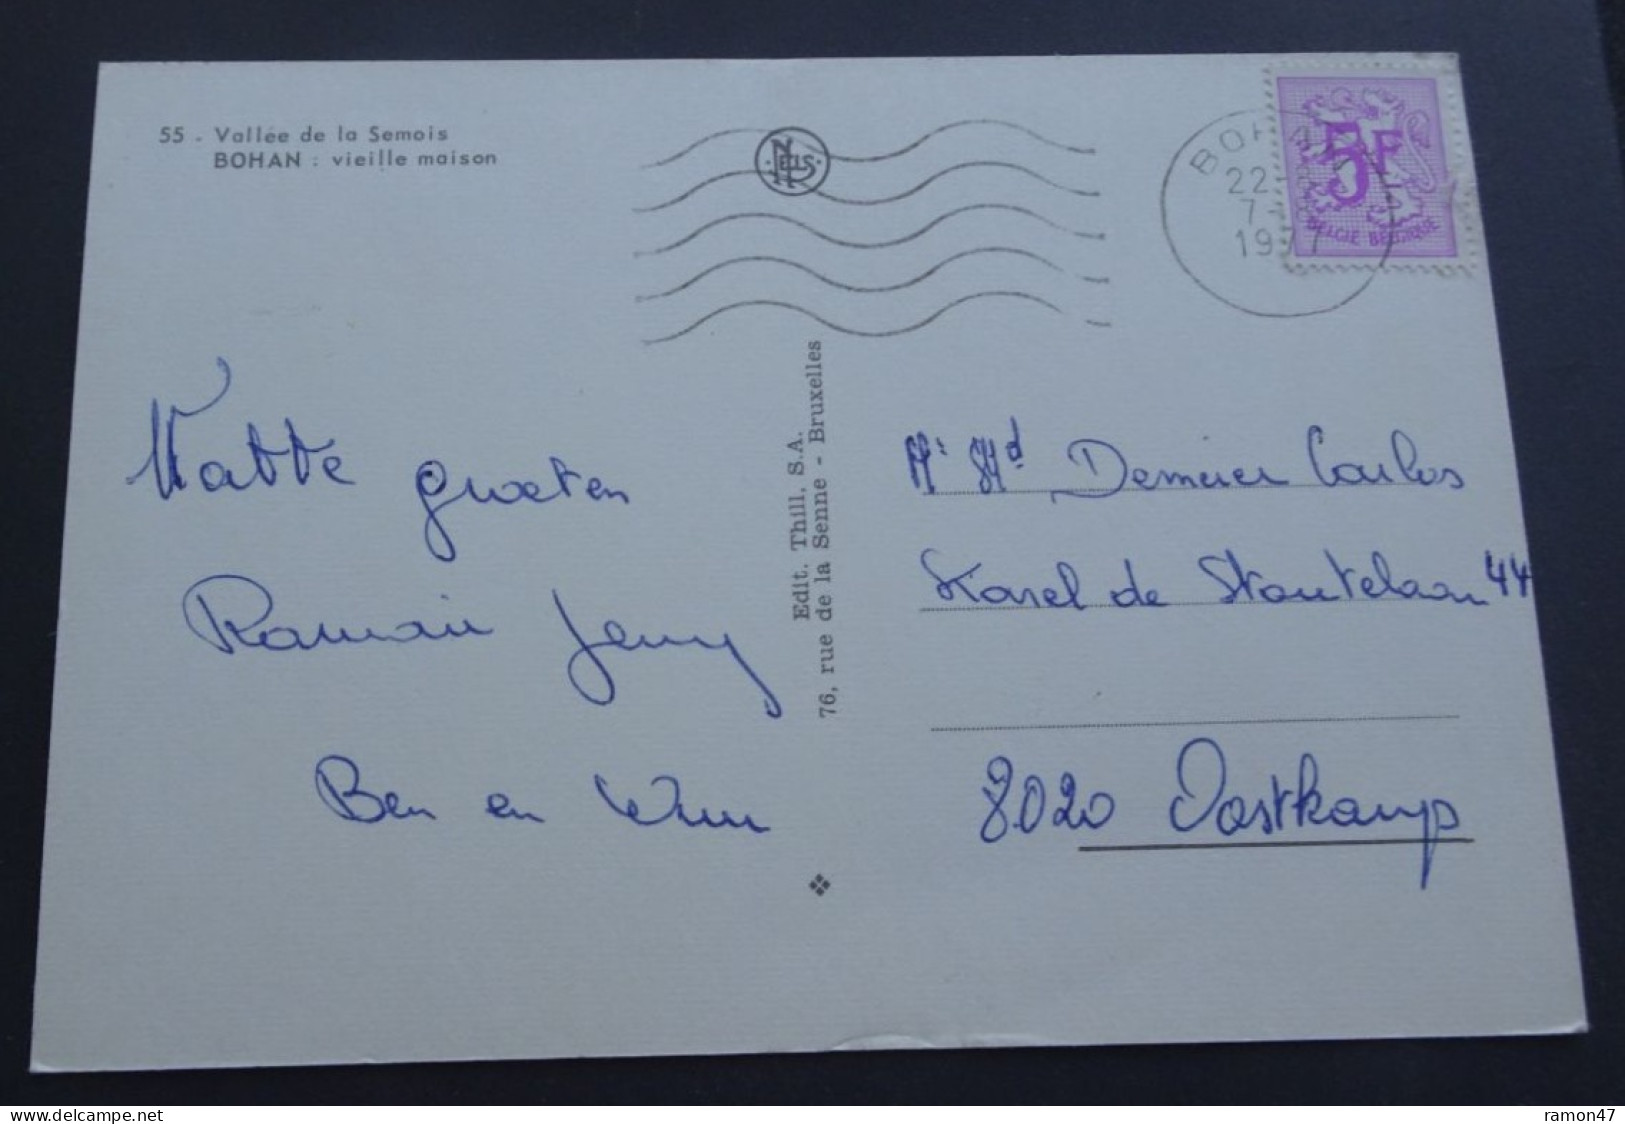 55 - Vallée de la Semois
BOHAN : vieille maison
NELS
BOHAN
22-
7-
1977
5F
BELGIË BELGIQUE
Natte groeten
Romain Jenny
Ben en Wim
Edit. Thill, S.A.
76, rue de la Senne - Bruxelles
Mr Md Demeier Carlos
Karel de Stoutelaan 44
8020 Oostkamp
www.delcampe.net
ramon47